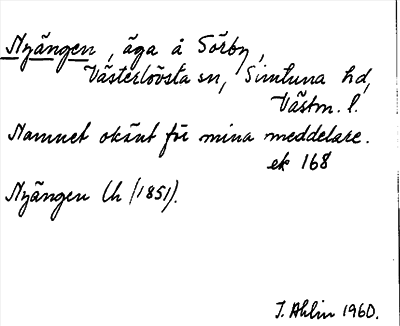 Nyängen, äga å Sörby,
Västerlövsta sn, Simtuna hd,
Västm. l.
Namnet okänt för mina meddelare.
ek 168
Nyängen Uh (1851).
I. Ahlin 1960.